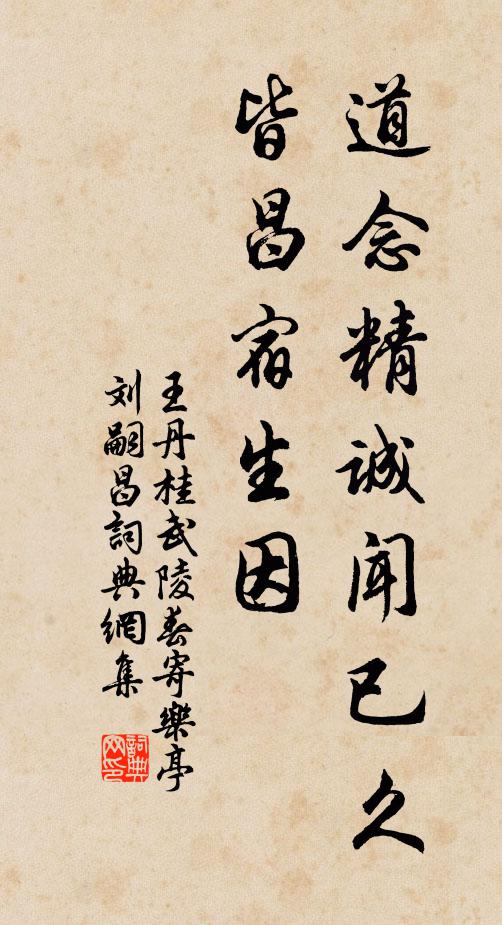 道念精诚闻已久
皆昌宿生因
王丹桂武陵春寄樂亭
刘嗣昌詞典網集
詞典
网印